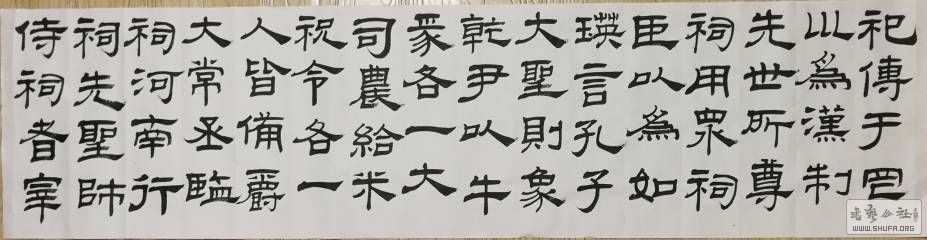 祀傳于罔
以為漢制
先世所尊
祠用眾祠
臣以為如
瑛言孔子
大聖則象
乾尹以牛
各一大
司農給米
祝令各一
人皆備爵
大常丞監
祠河南行
祠先聖師
侍祠者宰
書藝公社
WWW.SHUFA.ORG